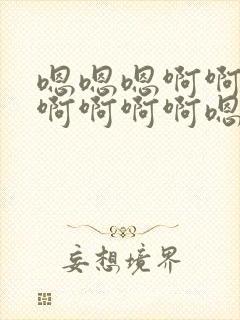 嗯嗯嗯啊啊
啊啊啊啊嗯
妄想境界